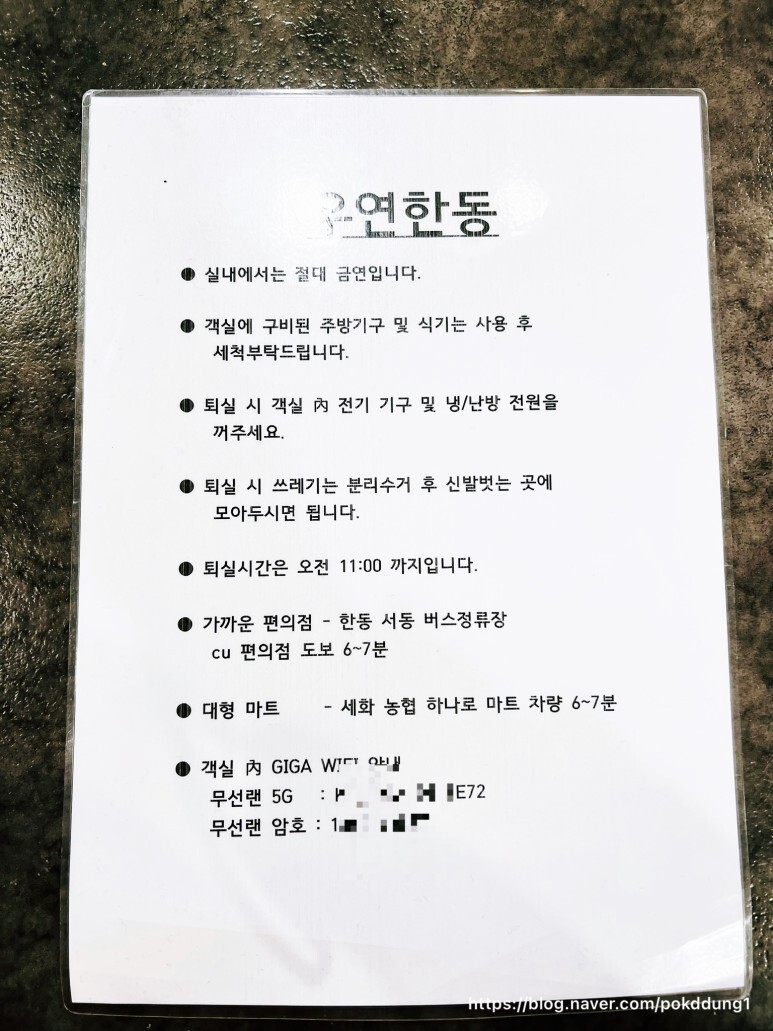 우연한동
● 실내에서는 절대 금연입니다.
● 객실에 구비된 주방기구 및 식기는 사용 후
세척부탁드립니다.
● 퇴실 시 객실 內 전기 기구 및 냉/난방 전원을
꺼주세요.
● 퇴실 시 쓰레기는 분리수거 후 신발벗는 곳에
모아두시면 됩니다.
● 퇴실시간은 오전 11:00 까지입니다.
● 가까운 편의점 - 한동 서동 버스정류장
cu 편의점 도보 6~7분
● 대형 마트 - 세화 농협 하나로 마트 차량 6~7분
● 객실 內 GIGA WIFI 안내
무선랜 5G : E72
무선랜 암호 : 1
https://blog.naver.com/pokddung1